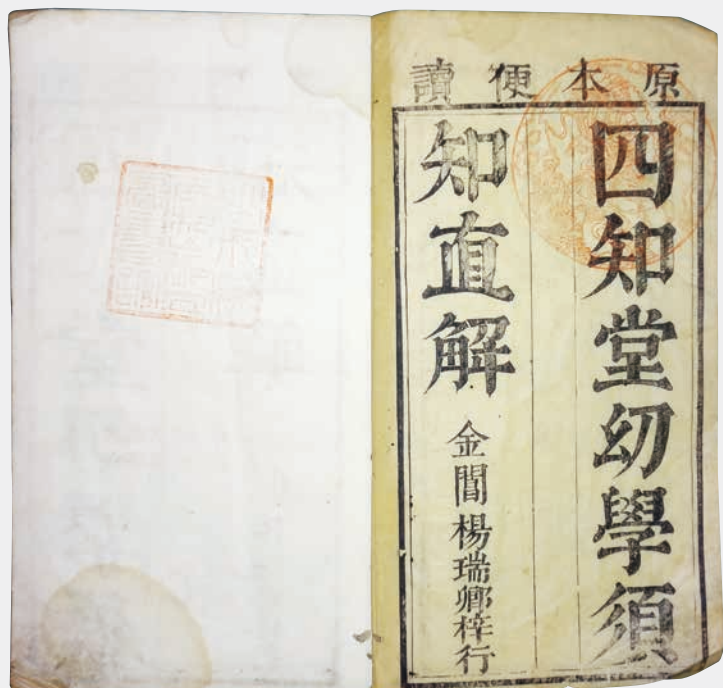 原本便讀
四知堂幼學須
知直解
金閶楊瑞卿梓行